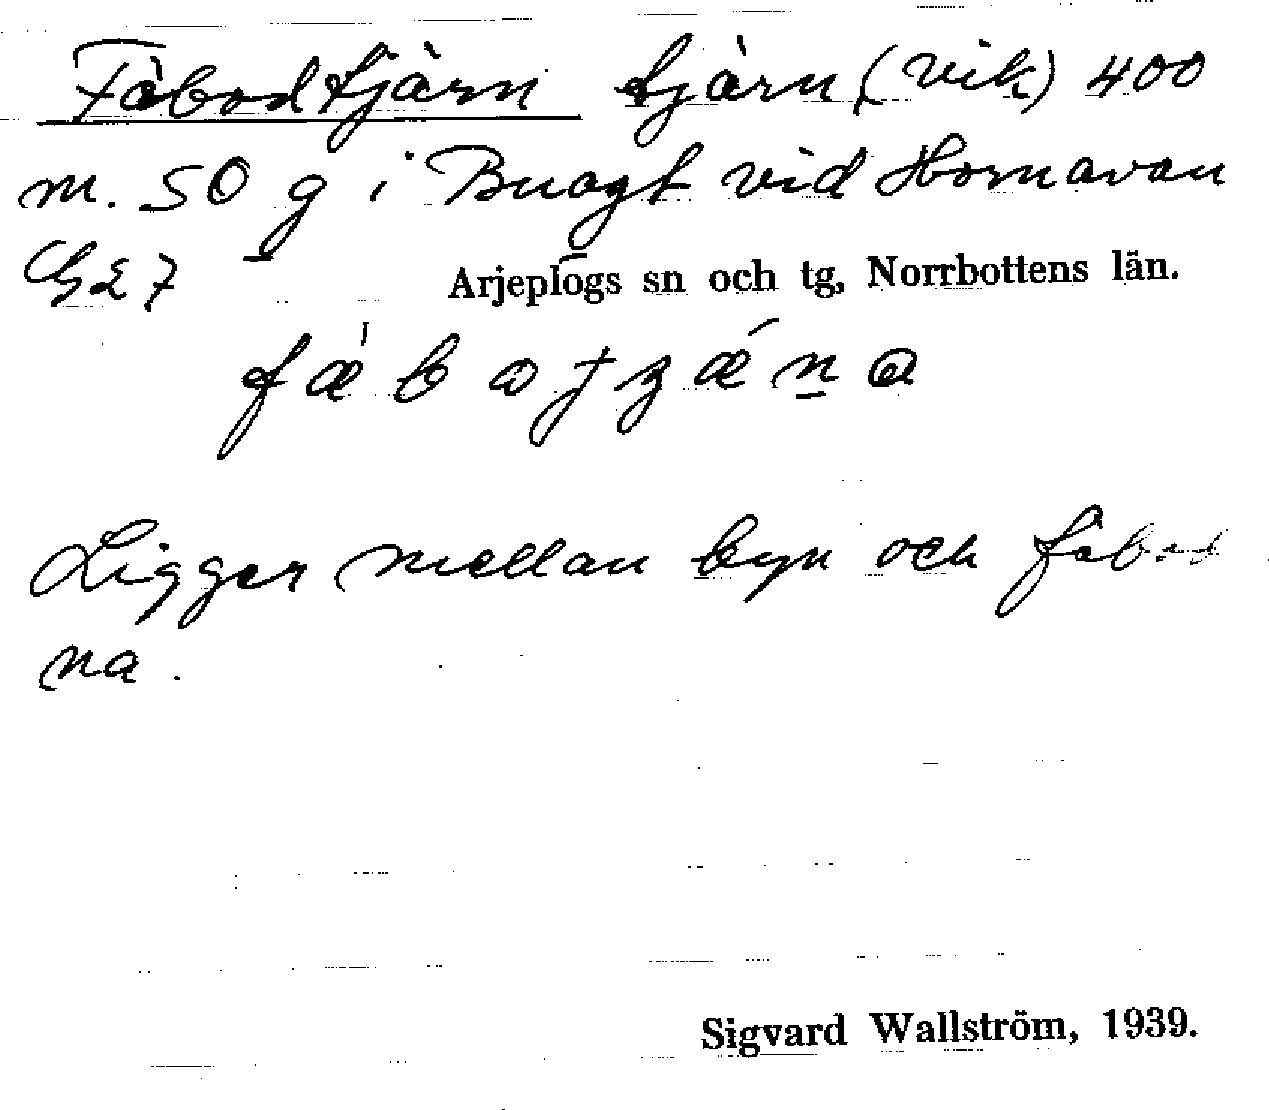 Fäbodtjärn tjärn (vik) 400
m. SO g i Buogt vid Hornavan
G27
Arjeplogs sn och tg, Norrbottens län.
Ligger mellan byn och fäbod
na.
Sigvard Wallström, 1939.